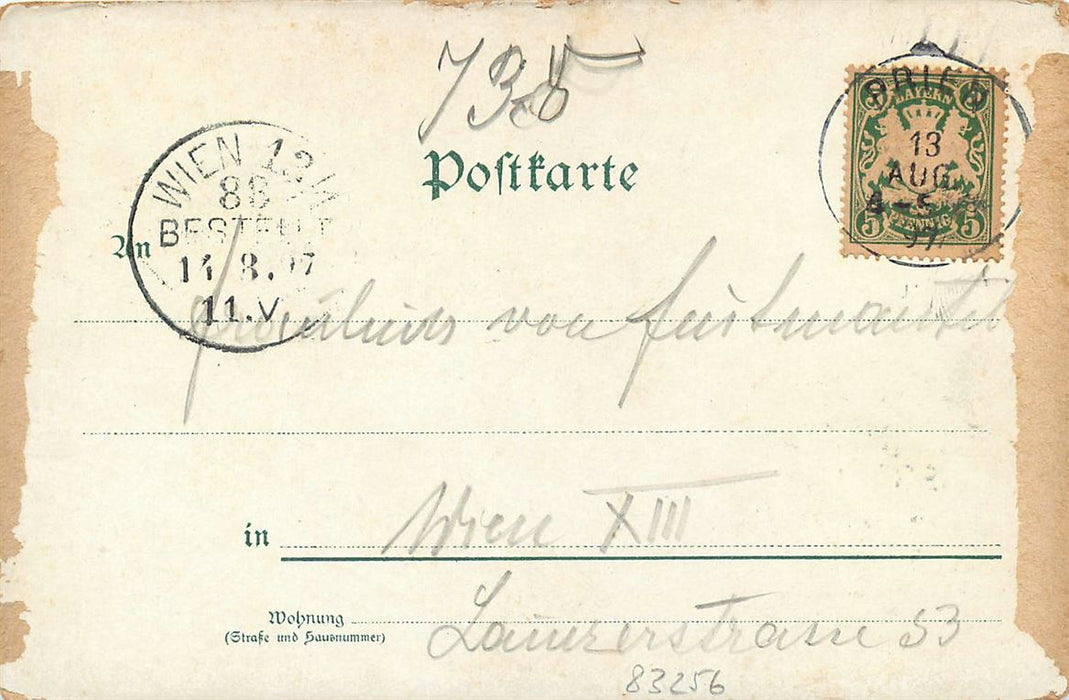 738
PRIEN
BAYERN
13
AUG
4-5
97
5 PFENNIG 5
Postkarte
WIEN 13/1
88
BESTELLT
14.8.97
11.V
An
Fräulein von
in Wien XIII
Wohnung
(Straße und Hausnummer)
Lainzerstrasse 53
83256